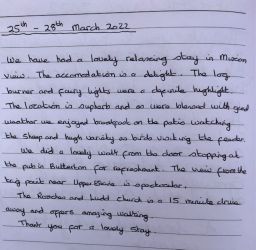 25th - 28th March 2022
We have had a lovely relaxing stay in Mixon
View. The accomodation is a delight. The log
burner and fairy lights were a definite highlight.
The location is superb and so were blessed with good
weather we enjoyed breakfast on the patio watching
the sheep and high variety of birds visiting the feeder.
We did a lovely walk from the door stopping at
the pub in Butterton for refreshment. The view from the
trig point near Upper Elkstone is spectacular.
The Roaches and Ludd Church is a 15 minute drive
away and offers amazing walking.
Thank you for a lovely stay.